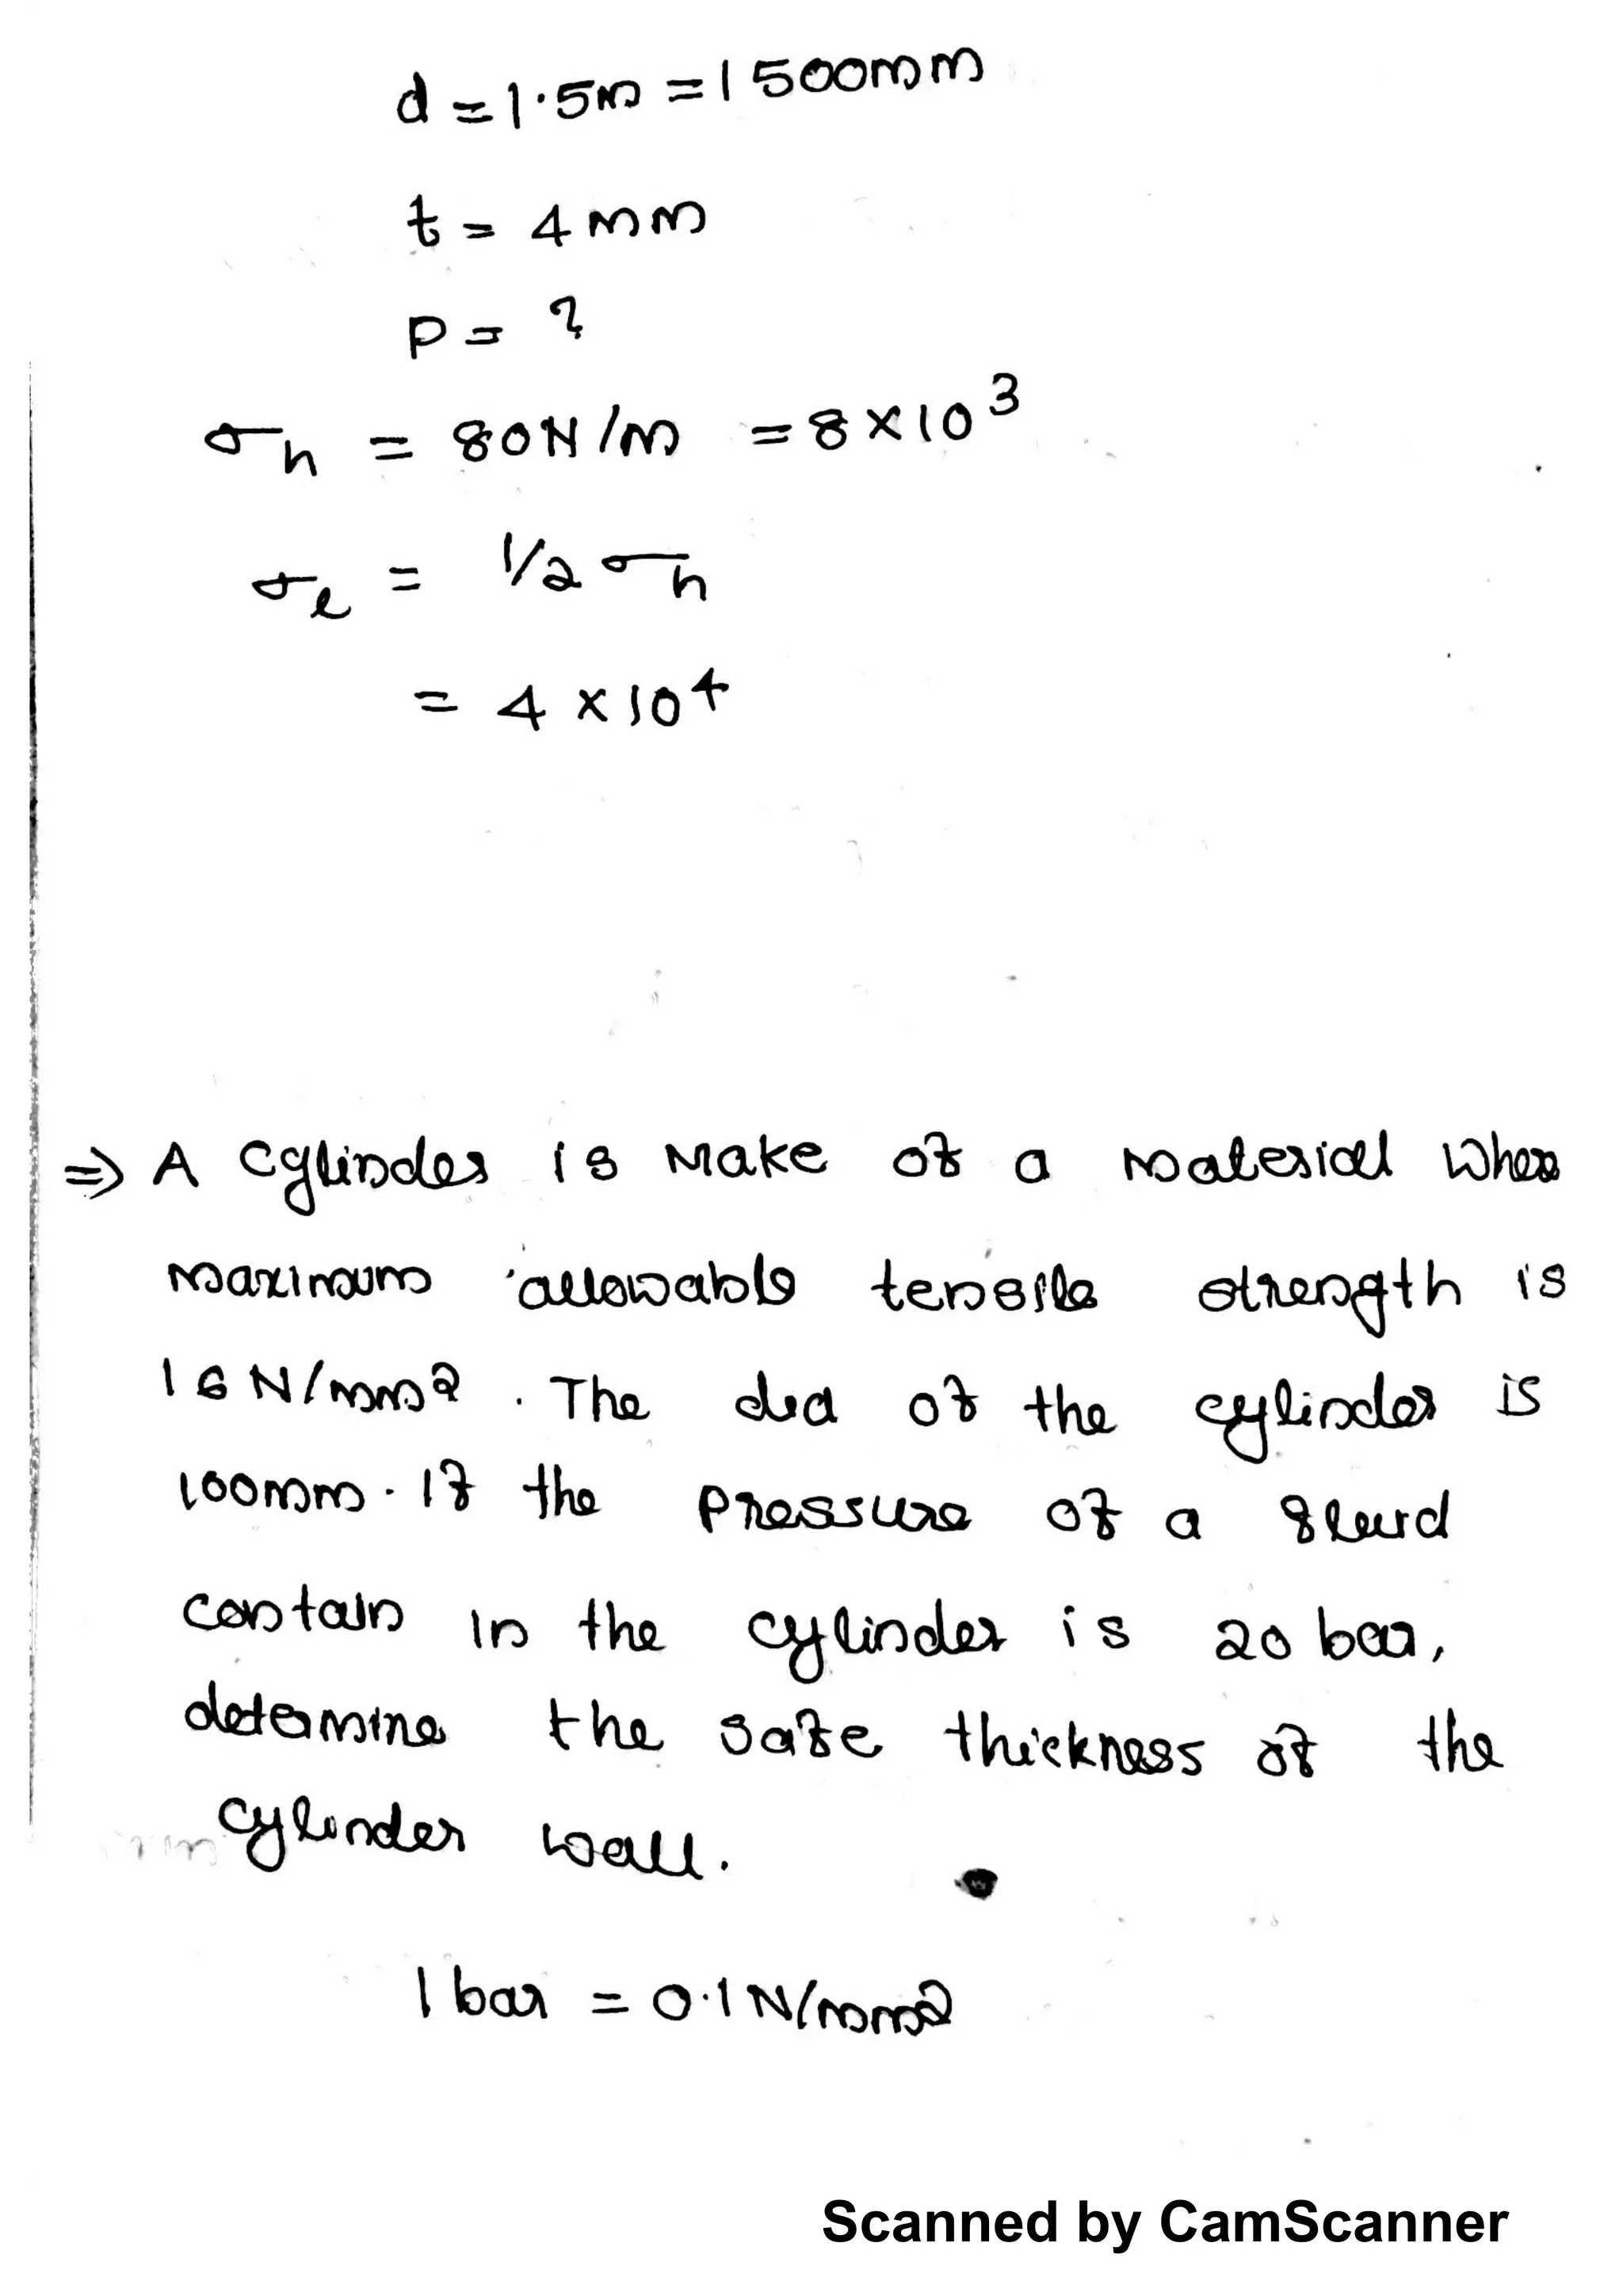 d = 1.5m = 1500mm
t = 4mm
P = ?
σh = 80N/m = 8×10³
σl = 1/2 σh
= 4 × 10⁴
⇒ A Cylinder is Make of a material Whose
maximum allowable tensile strength is
16 N/mm². The dia of the cylinder is
100mm. If the pressure of a fluid
contain in the cylinder is 20 bar,
determine the safe thickness of the
cylinder wall.
1 bar = 0.1N/mm²
Scanned by CamScanner